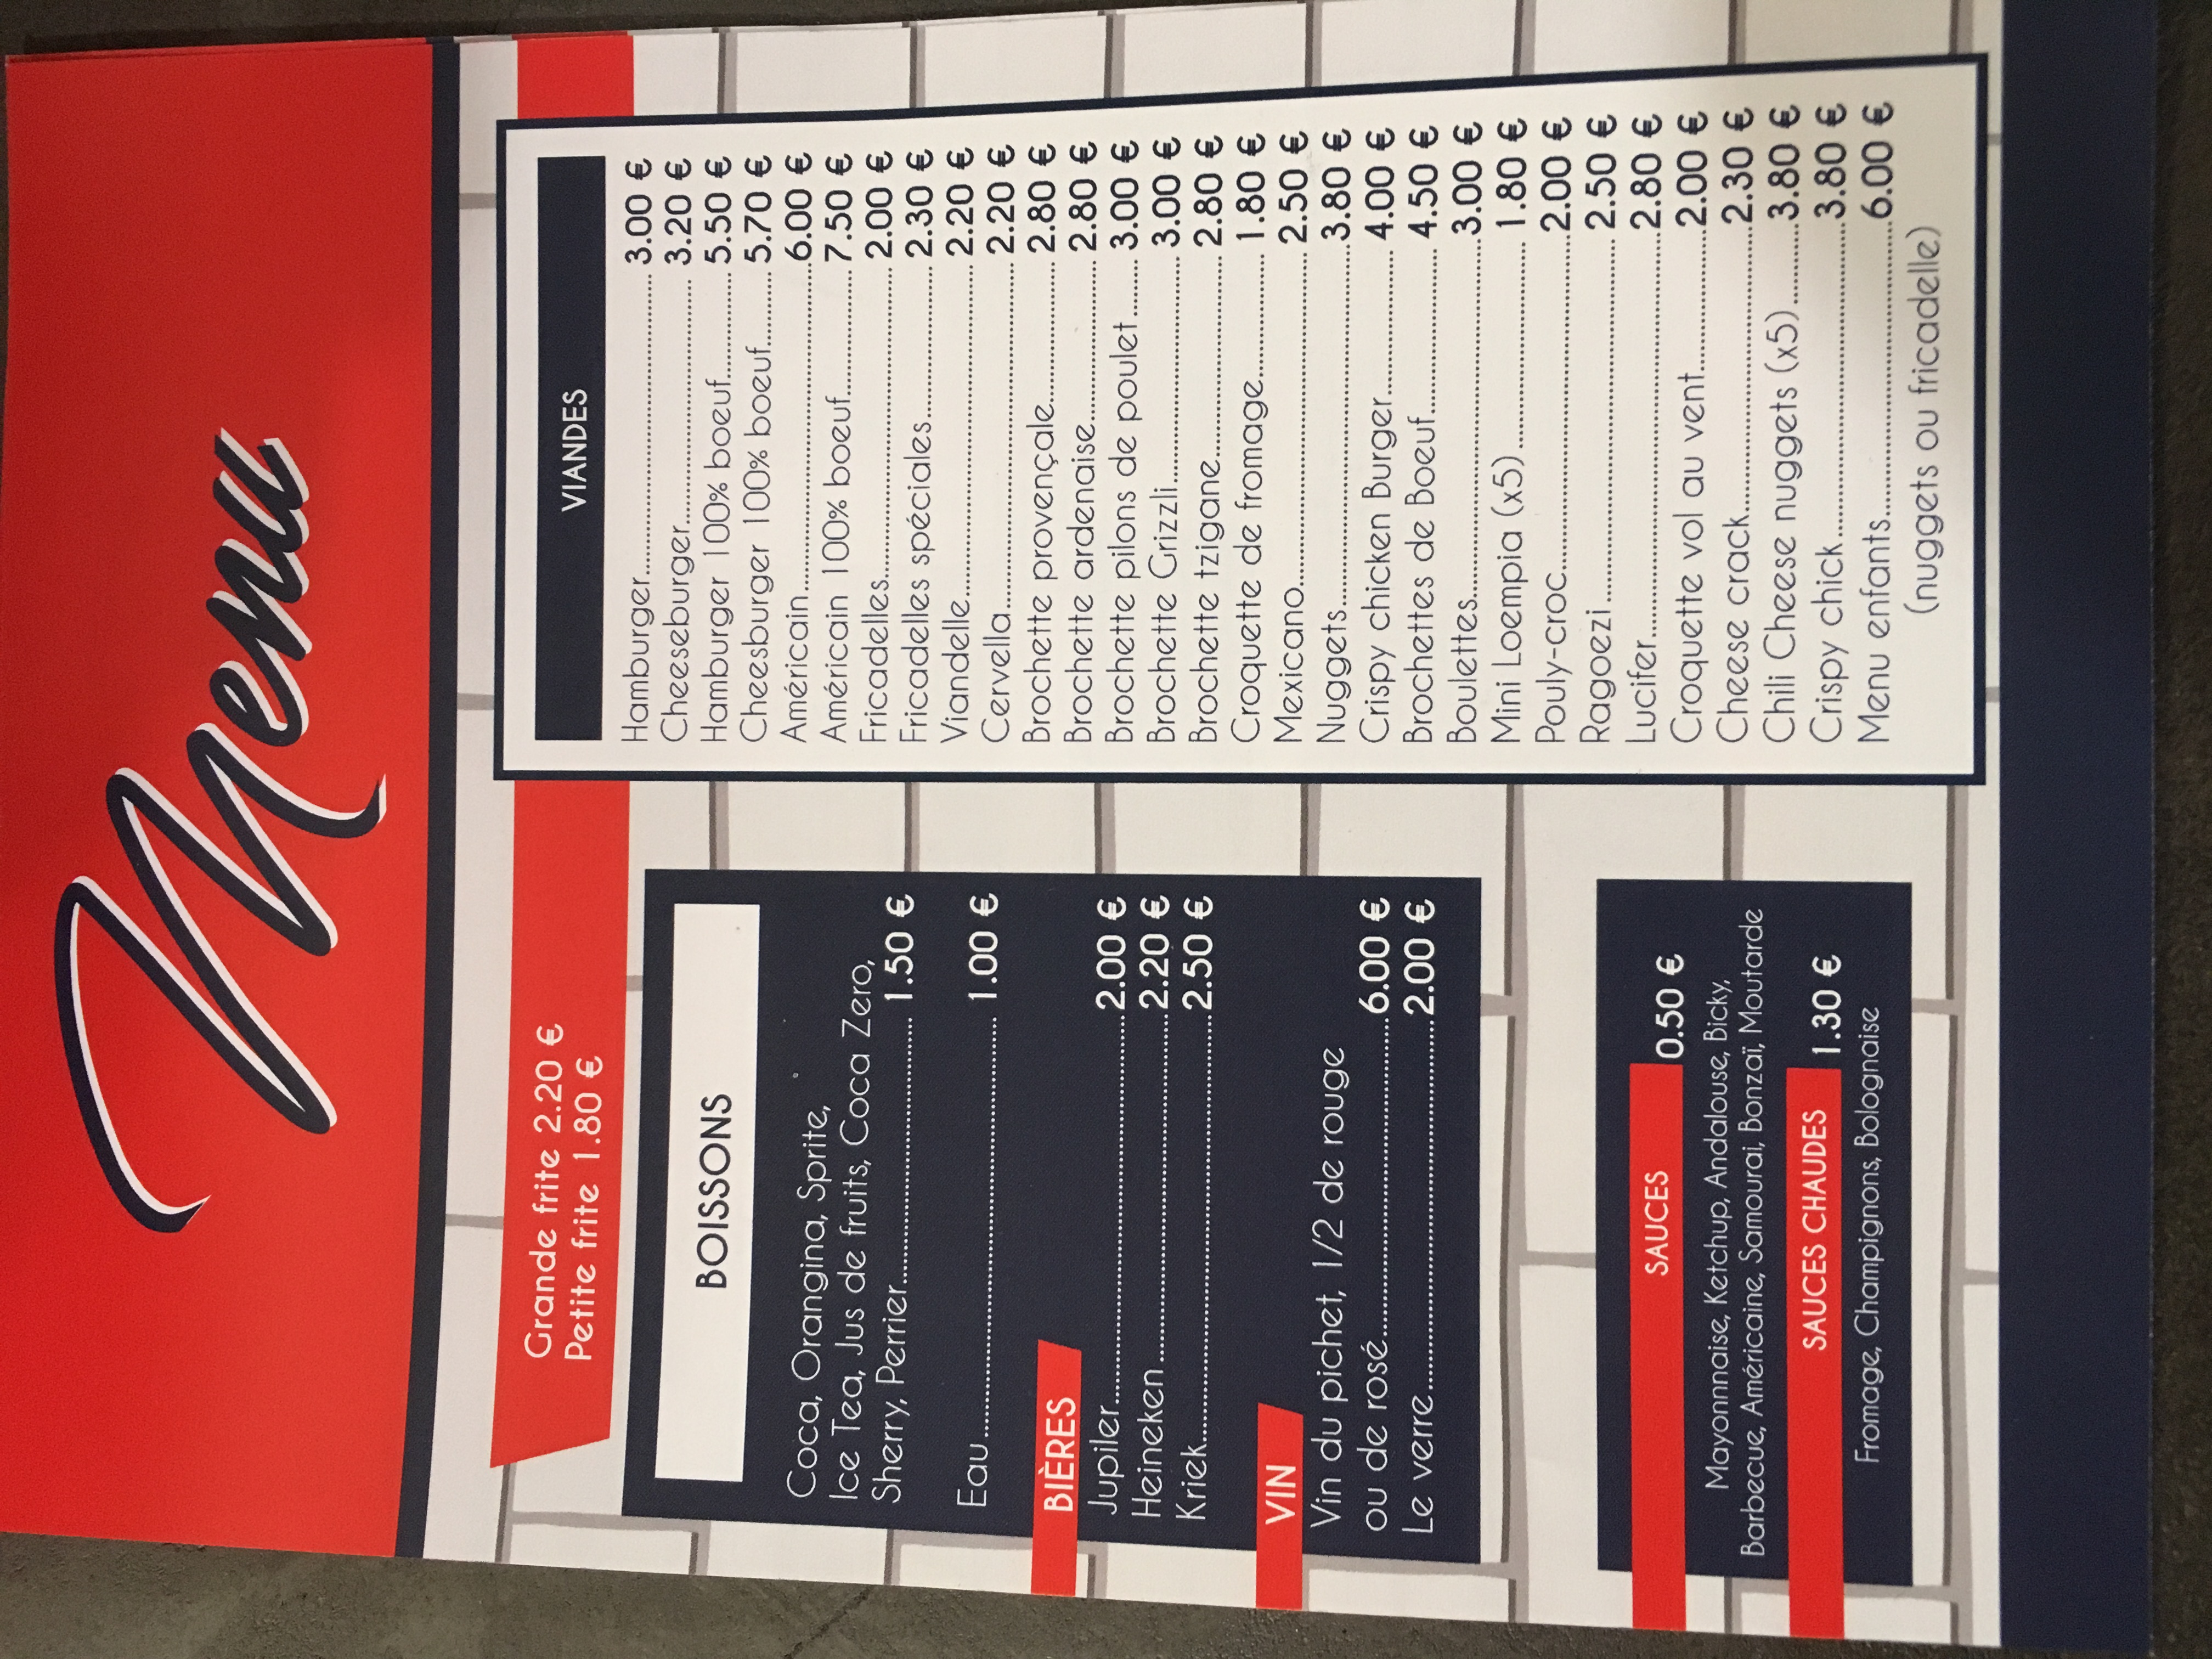 Menu
Grande frite 2.20 €
Petite frite 1.80 €
BOISSONS
Coca, Orangina, Sprite,
Ice Tea, Jus de fruits, Coca Zero,
Sherry, Perrier........ 1.50 €
Eau........ 1.00 €
BIÈRES
Jupiler........2.00 €
Heineken........2.20 €
Kriek........2.50 €
VIN
Vin du pichet, 1/2 de rouge
ou de rosé........6.00 €
Le verre........2.00 €
SAUCES 0.50 €
Mayonnnaise, Ketchup, Andalouse, Bicky,
Barbecue, Américaine, Samourai, Bonzaï, Moutarde
SAUCES CHAUDES 1.30 €
Fromage, Champignons, Bolognaise
VIANDES
Hamburger........ 3.00 €
Cheeseburger........ 3.20 €
Hamburger 100% boeuf........ 5.50 €
Cheesburger 100% boeuf........ 5.70 €
Américain........6.00 €
Américain 100% boeuf........ 7.50 €
Fricadelles........2.00 €
Fricadelles spéciales........ 2.30 €
Viandelle........2.20 €
Cervella........2.20 €
Brochette provençale........2.80 €
Brochette ardenaise........2.80 €
Brochette pilons de poulet........3.00 €
Brochette Grizzli........3.00 €
Brochette tzigane........2.80 €
Croquette de fromage........ 1.80 €
Mexicano........ 2.50 €
Nuggets........3.80 €
Crispy chicken Burger........ 4.00 €
Brochettes de Boeuf........ 4.50 €
Boulettes........3.00 €
Mini Loempia (x5)........ 1.80 €
Pouly-croc........2.00 €
Ragoezi........ 2.50 €
Lucifer........2.80 €
Croquette vol au vent........2.00 €
Cheese crack........2.30 €
Chili Cheese nuggets (x5)........3.80 €
Crispy chick........3.80 €
Menu enfants........6.00 €
(nuggets ou fricadelle)